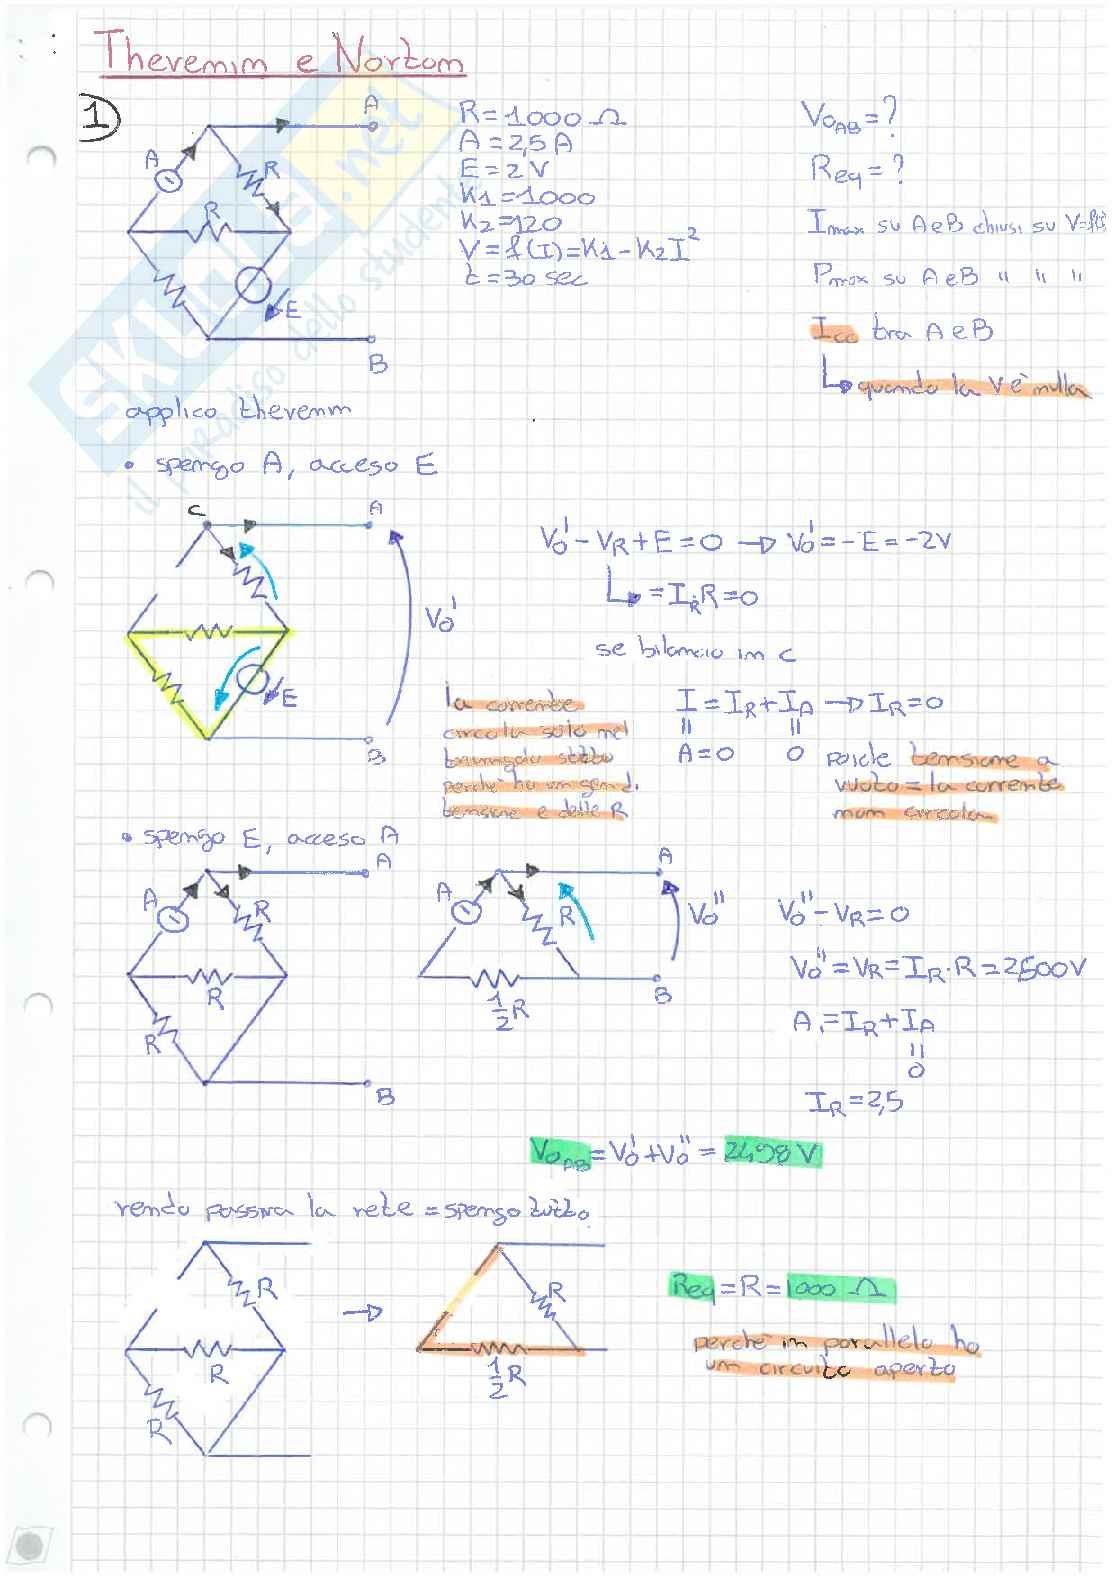 Thevenin e Norton
1)
A
A
R
R
E
B
R=1000 Ω
A=2,5 A
E=2V
K1=1000
K2=120
V=f(I)=K1-K2I²
t=30 sec
V0AB=?
Req=?
Imax su A e B chiusi su V=f(I)
Pmax su A e B " " "
Icc tra A e B
↳ quando la V è nulla
applico thevenin
• spengo A, acceso E
C
A
V0'
E
B
V0'-VR+E=0 → V0'=-E=-2V
↳ =IR·R=0
se bilancio in C
la corrente
circola solo nel
triangolo sotto
perché ha un gen. di
tensione e delle R
I=IR+IA → IR=0
A=0
0
poiché tensione a
vuoto = la corrente
non circola
• spengo E, acceso A
A
A
R
R
R
B
A
A
R
V0"
B
½R
V0"-VR=0
V0"=VR=IR·R=2500V
A=IR+IA
0
IR=2,5
V0AB=V0'+V0"=2498V
rendo passiva la rete = spengo tutto
R
R
R
→
R
½R
Req=R=1000 Ω
perché in parallelo ho
un circuito aperto
SKUOLA.net
il paradiso dello studente